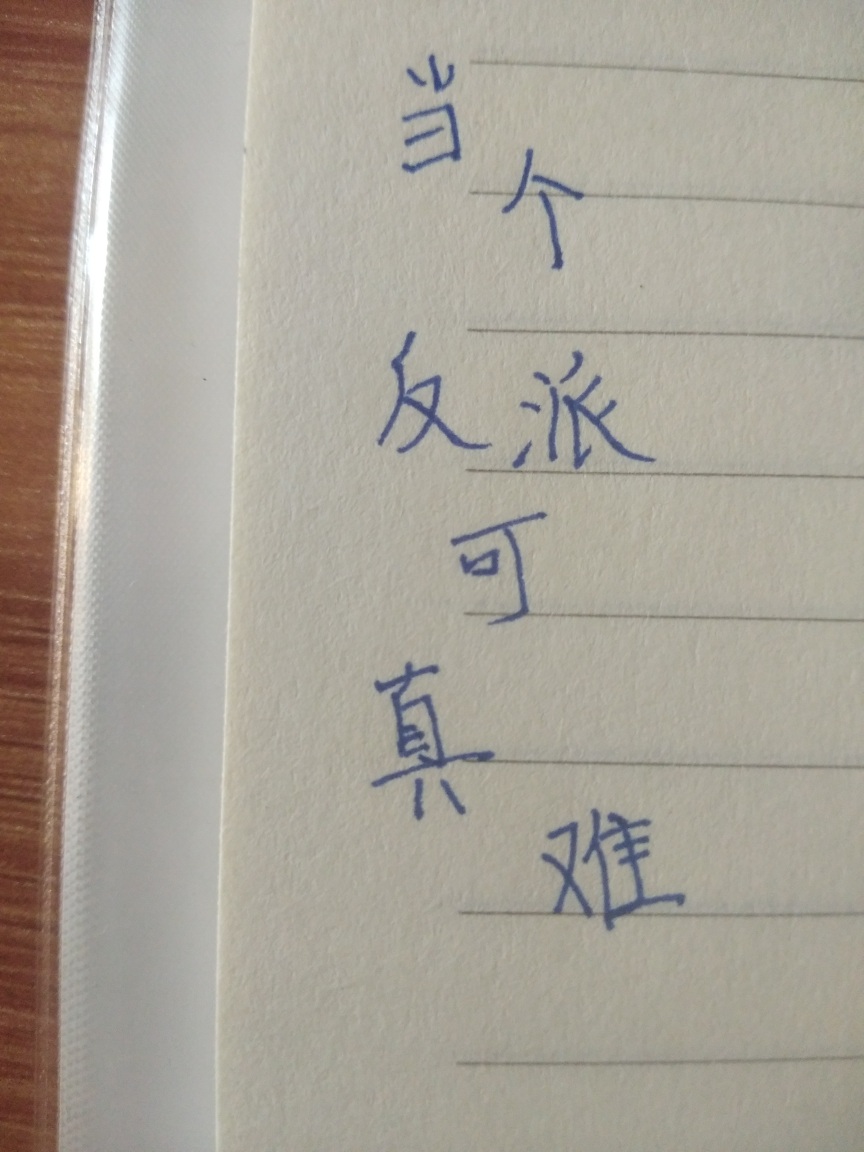 当
个
反派
可
真
难